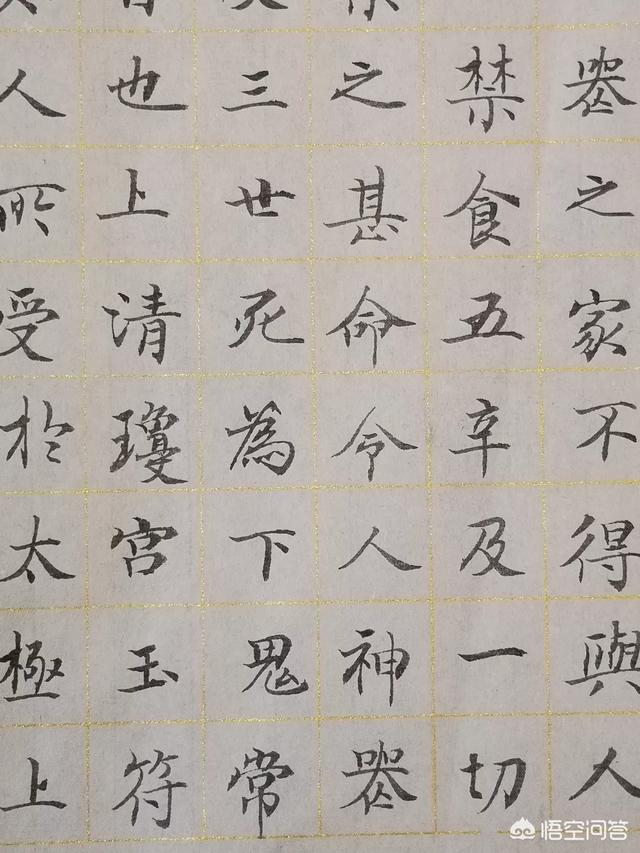 喪之家不得與人
禁食五辛及一切
之甚命令人神喪
三世死為下鬼常
也上清瓊宫玉符
人所受於太極上
悟空问答